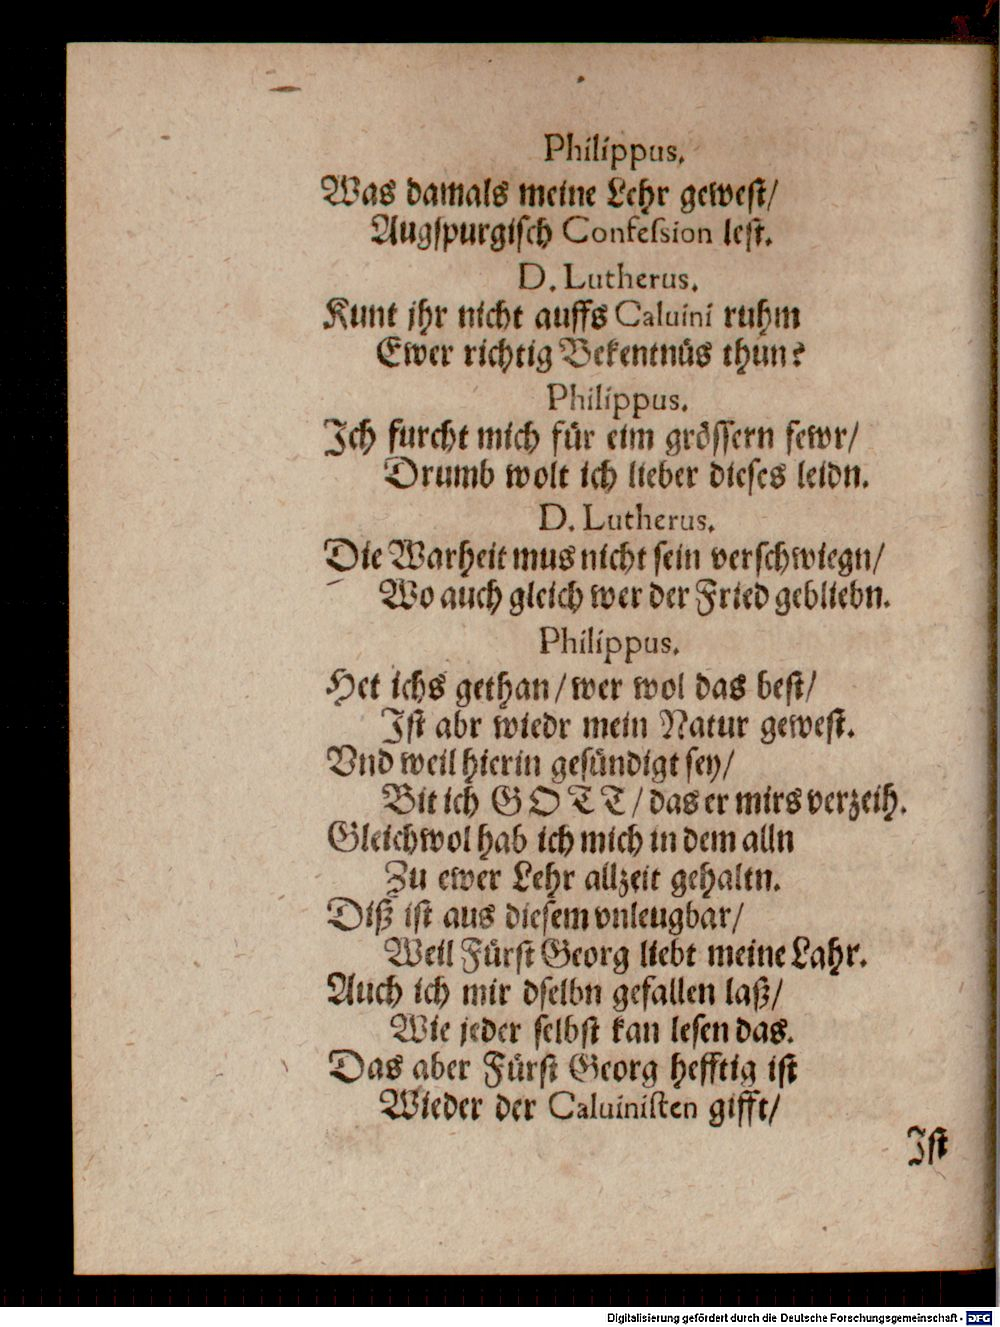 Philippus.
Was damals meine Lehr gewest/
Augspurgisch Confession lest.
D. Lutherus.
Kunt jhr nicht auffs Caluini ruhm
Ewer richtig Bekentnüs thun?
Philippus.
Jch furcht mich für eim grössern fewr/
Drumb wolt ich lieber dieses leidn.
D. Lutherus.
Die Warheit mus nicht sein verschwiegn/
Wo auch gleich wer der Fried gebliebn.
Philippus.
Het ichs gethan/ wer wol das best/
Jst abr wiedr mein Natur gewest.
Vnd weil hierin gesündigt sey/
Bit ich GOTT/ das er mirs verzeih.
Gleichwol hab ich mich in dem alln
Zu ewer Lehr allzeit gehaltn.
Diß ist aus diesem vnleugbar/
Weil Fürst Georg liebt meine Lahr.
Auch ich mir dselbn gefallen laß/
Wie jeder selbst kan lesen das.
Das aber Fürst Georg hefftig ist
Wieder der Caluinisten gifft/
Jst
Digitalisierung gefördert durch die Deutsche Forschungsgemeinschaft - DFG